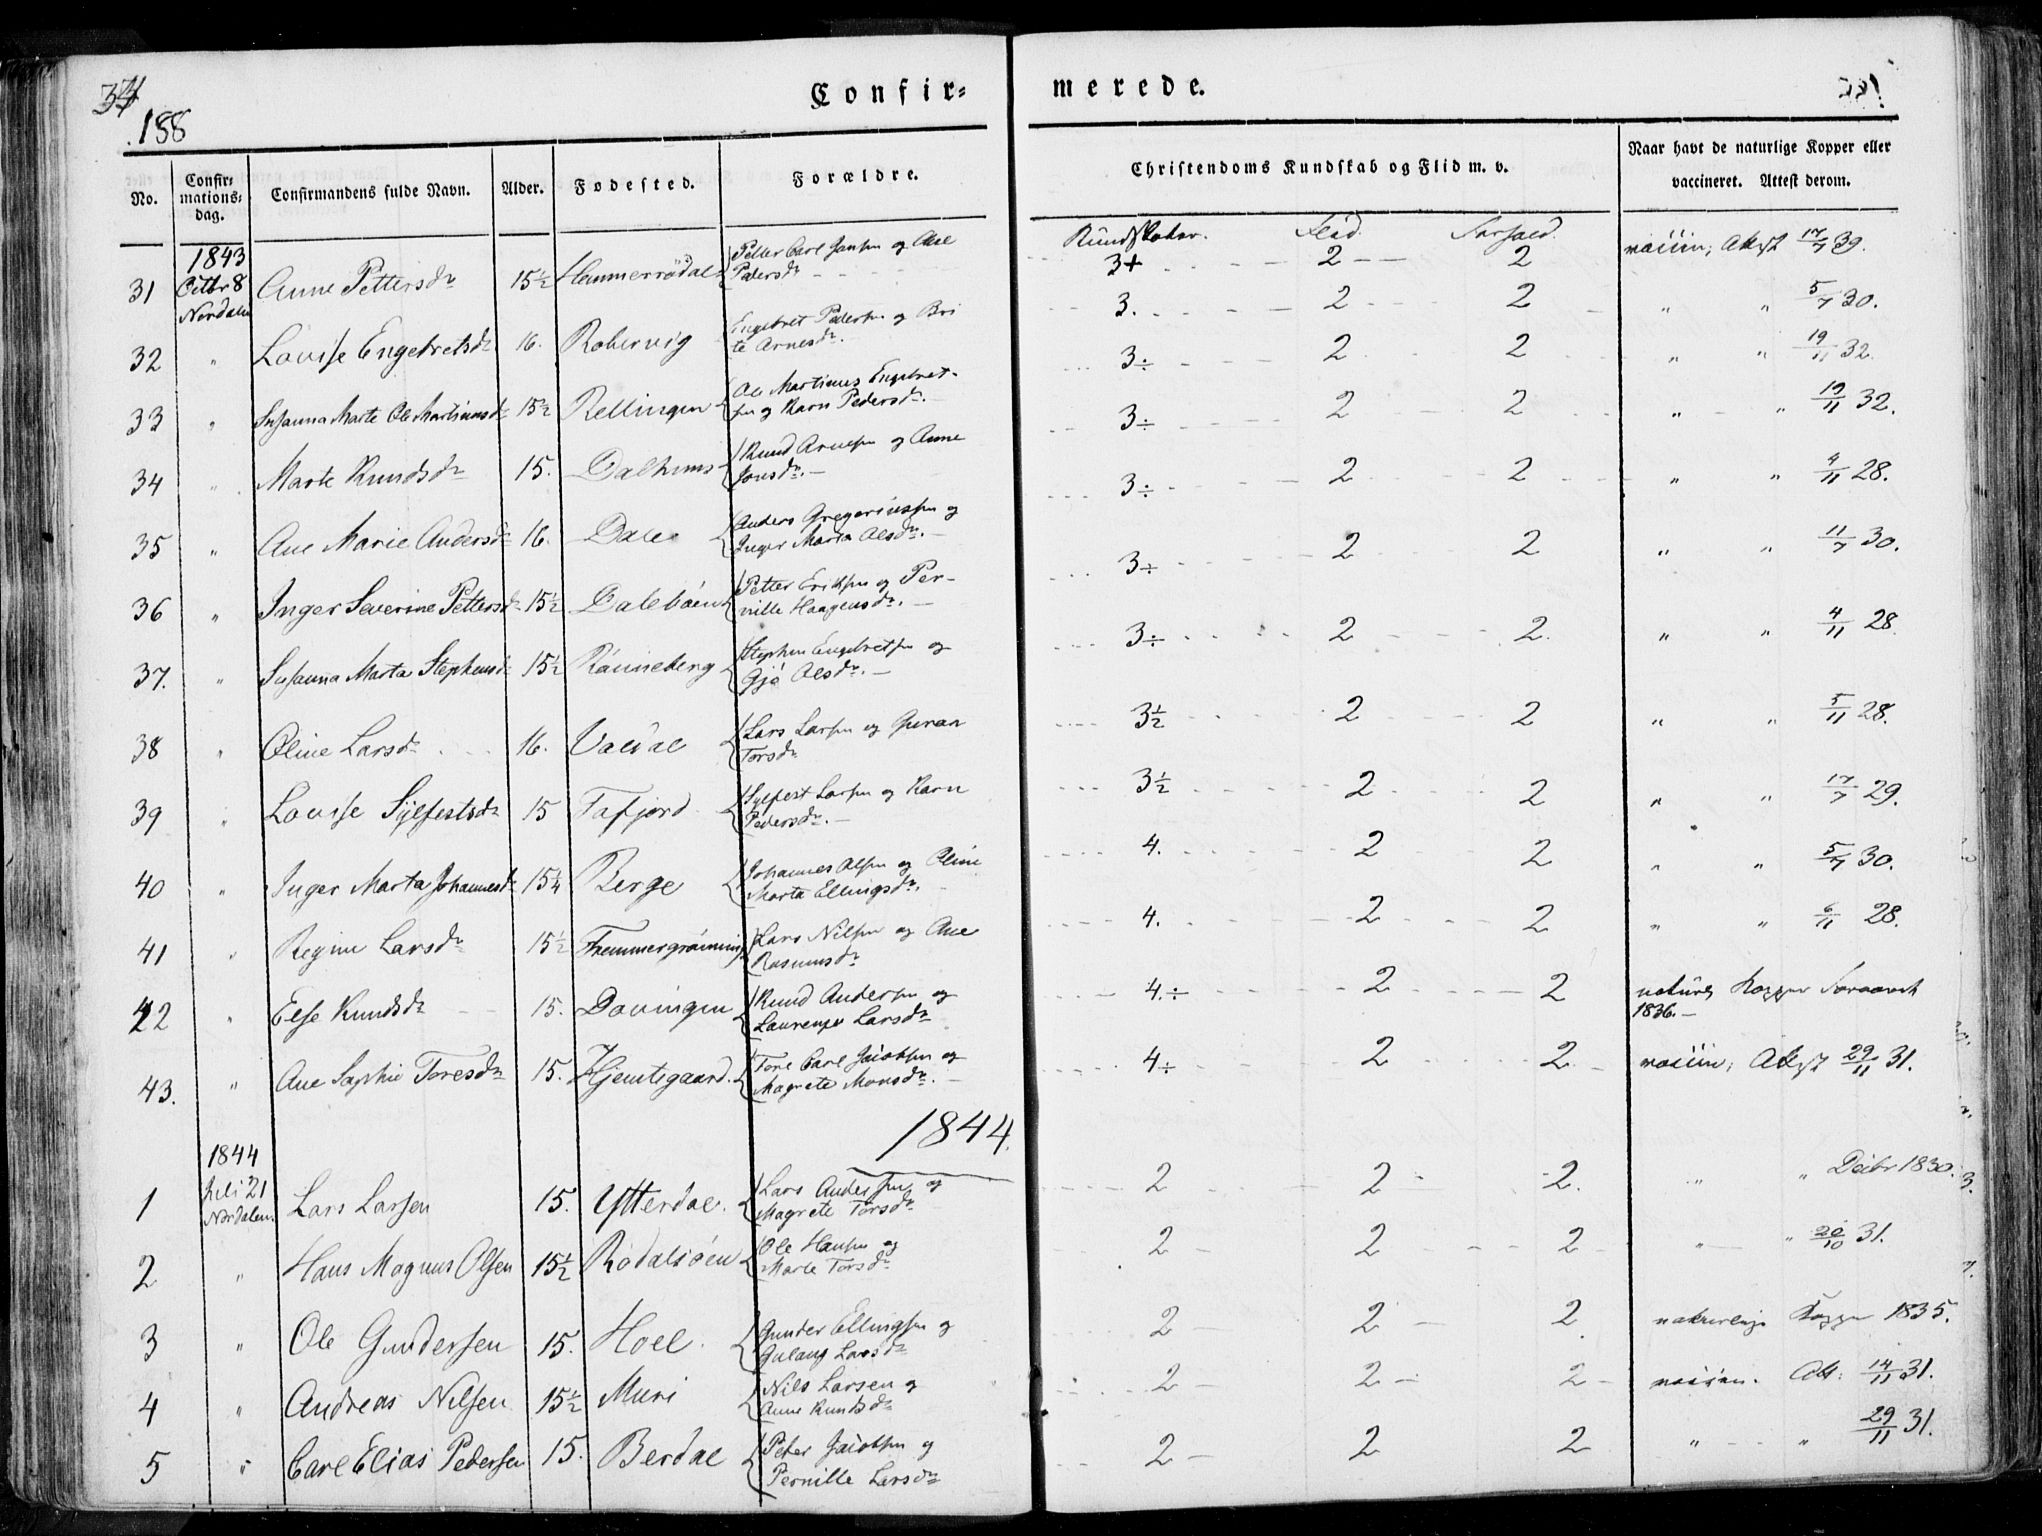 34
188
Confir-
merede.
No.
Confir-
mations-
dag.
Confirmandens fulde Navn.
Alder.
Fødested.
Forældre.
Christendoms Kundskab og Flid m. v.
Naar havt de naturlige Kopper eller
vaccineret. Attest derom.
Kundskaber. Flid. Forhold.
1843
Octbr 8
Nordalen
31 Anne Pettersdr 15½ Hammerrødal Petter Carl Jansen og Ane
Pedersdr 3+ 2 2 vaccin; Attest 17/7 39.
32 " Lovise Engebretsdr 16. Robervig Engebret Pedersen og Bri
te Arnesdr. 3. 2 2 " " 5/7 30.
33 " Susanna Marte Ole Martinusdr 15½ Rellingen Ole Martinus Engebret-
sen og Karn Pedersdr. 3÷ 2 2 " " 19/11 32.
34 " Marte Knudsdr 15. Dalhuus Knud Arnesen og Anne
Jonsdr. 3÷ 2 2 " " 19/11 32.
35 " Ane Marie Andersdr 16. Dale Anders Gregoriussen og
Inger Marta Olsdr. 3÷ 2 2 " " 4/11 28.
36 " Inger Severine Pettersdr 15½ Dalebøen Petter Eriksen og Per-
nille Haagensdr. 3÷ 2 2 " " 11/7 30.
37. " Susanna Marta Stephensdr 15½ Rønneberg Stephen Engebretsen og
Gjø Olsdr. 3÷ 2 2. " " 4/11 28
38 " Oline Larsdr 16. Valdal Lars Larsen og Guran
Torsdr 3½ 2 2 " " 5/11 28.
39 " Lovise Sylfestsdr 15 Tafjord Sylfest Larsen og Karn
Pedersdr. 3½ 2 2 " " 17/7 29.
40 " Inger Marta Johannesdr 15¼ Berge Johannes Olsen og Oline
Marta Ellingsdr. 4. 2 2 " " 5/7 30.
41 " Regine Larsdr 15½ Fremmergrønning Lars Nilsen og Ane
Rasmusdr 4. 2 2 " " 6/11 28.
42 " Else Knudsdr 15. Døvingen Knud Andersen og
Laurense Larsdr 4.÷ 2 2 naturl Kopper Foraaret
1836.
43. " Ane Sophie Toresdr 15. Hjemtegaard. Tore Carl Jacobsen og
Magrete Monsdr. 4÷ 2 2 vaccin; Attest 29/11 31.
1844.
1844
Juli 21
Nordalen
1 Lars Larsen 15. Ytterdal. Lars Andersen og
Magrete Torsdr 2 2 2. " " Decbr 1830.
2 " Hans Magnus Olsen 15½ Rødalsøen Ole Hansen og
Marte Torsdr 2 2 2 " " 20/10 31.
3 " Ole Gundersen 15. Hoel. Gunder Ellingsen og
Gulaug Larsdr 2 2 2 naturlige Kopper 1835.
4 " Andreas Nilsen 15½ Muri Nils Larsen og
Anne Knudsdr 2 2 2 vaccin. Att: 14/11 31.
5 " Carl Elias Pedersen 15. Berdal Peter Jacobsen og
Pernille Larsdr 2 2 2 " " 29/11 31.